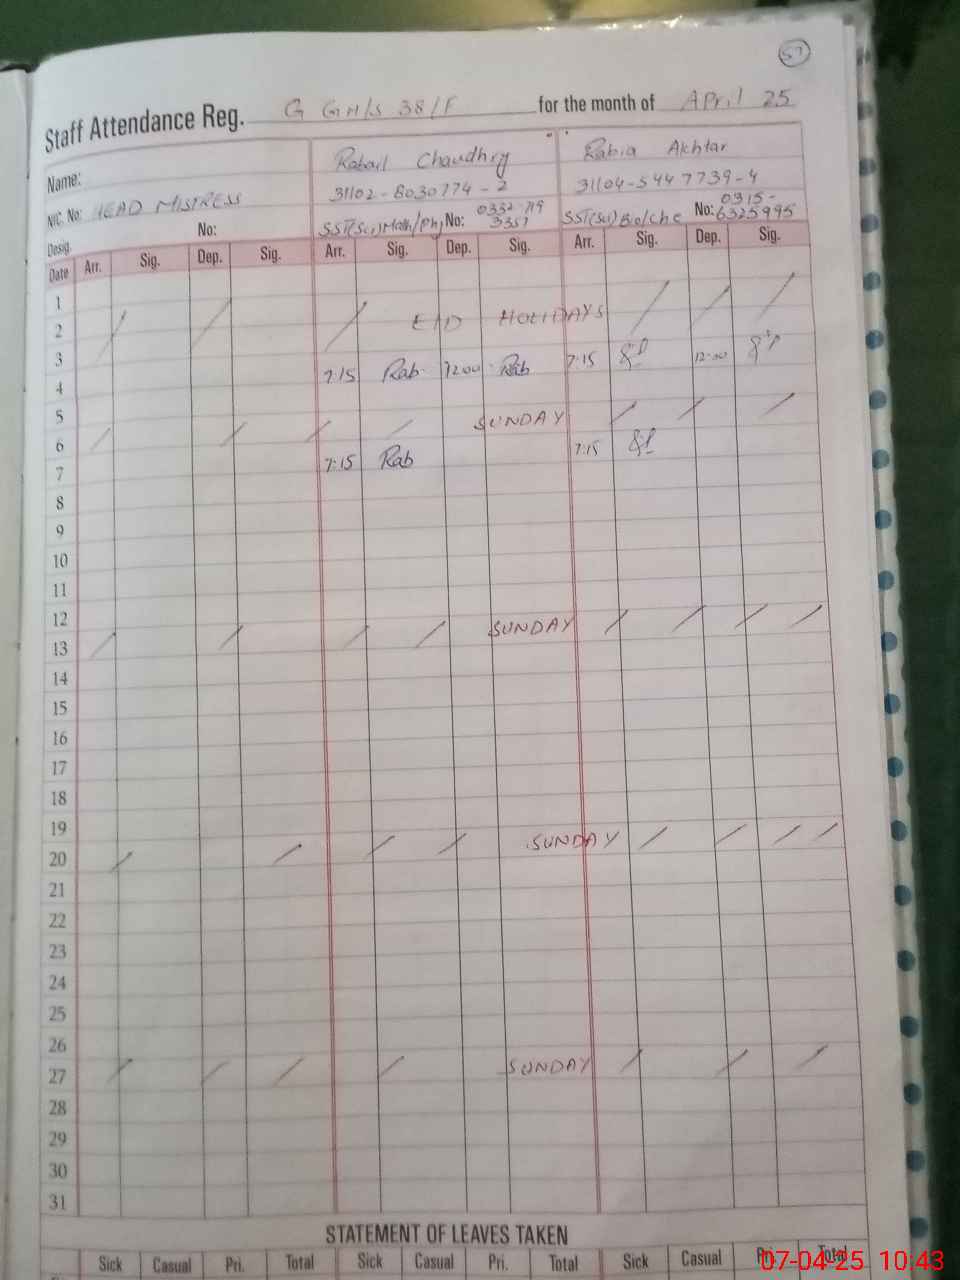 57
Staff Attendance Reg. G GH/S 38/F for the month of April 25
Name: Rabail Chaudhry Rabia Akhtar
NIC. No: HEAD MISTRESS 31102-8030774-2 31104-5447739-4
Desig. No: SST(Sci) Math/Phy No: 0332-719 3351 SST(Sci) Bio/Che No: 0315-6325995
Date Arr. Sig. Dep. Sig. Arr. Sig. Dep. Sig. Arr. Sig. Dep. Sig.
1
2 EID HOLIDAYS
3
4 7:15 Rab 12:00 Rab 7:15 12:00
5
6 SUNDAY
7 7:15 Rab 7:15
8
9
10
11
12
13 SUNDAY
14
15
16
17
18
19
20 SUNDAY
21
22
23
24
25
26
27 SUNDAY
28
29
30
31
STATEMENT OF LEAVES TAKEN
Sick Casual Pri. Total Sick Casual Pri. Total Sick Casual Pri. Total
07-04-25 10:43